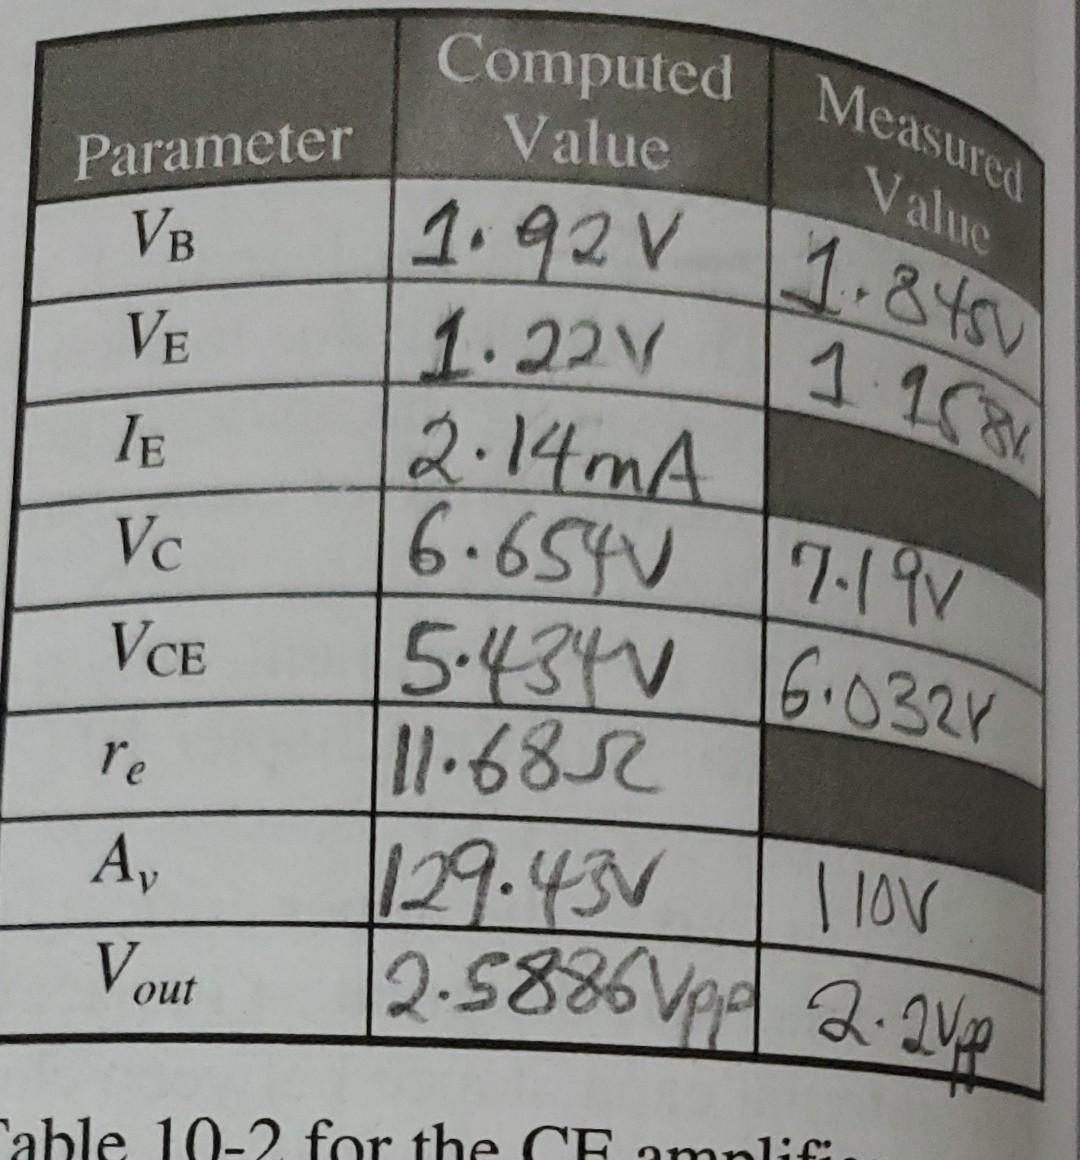 Parameter Computed Value Measured Value
VB 1.92V 1.845V
VE 1.22V 1.158V
IE 2.14mA
VC 6.654V 7.19V
VCE 5.434V 6.032V
re 11.68Ω
Av 129.43V 110V
Vout 2.5886Vpp 2.2Vpp
Table 10-2 for the CE